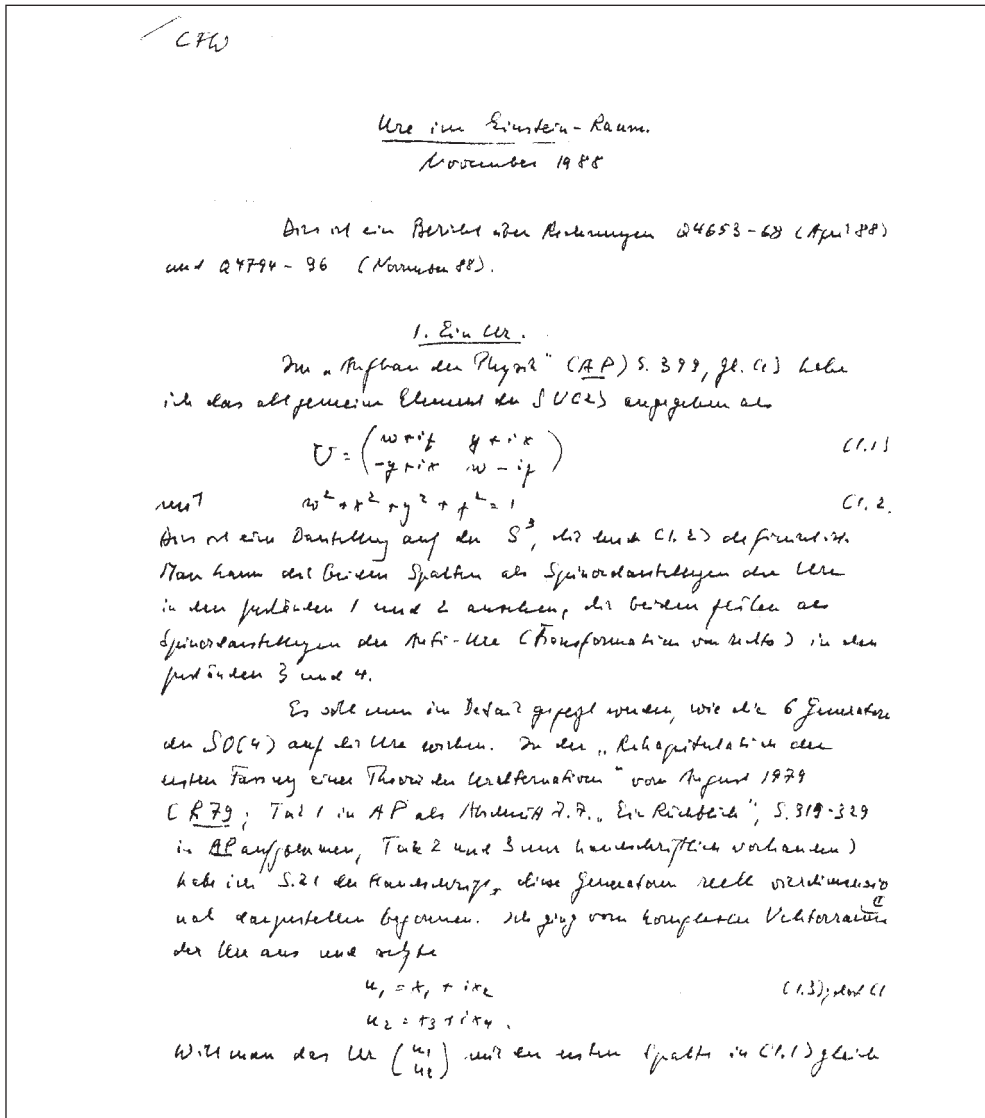 CFW
Ure im Einstein-Raum.
November 1988
Dies ist ein Bericht über Rechnungen Q4653-68 (April 88)
und Q4794-96 (November 88).
1. Ein Ur.
Im „Aufbau der Physik" (AP) S. 399, gl. (1) habe
ich das allgemeine Element der SU(2) angegeben als
U = ( w+iz y+ix ) (1.1)
( -y+ix w-iz )
mit w² + x² + y² + z² = 1 (1.2.
Dies ist eine Darstellung auf der S³, die durch (1.2) definiert ist.
Man kann die beiden Spalten als Spinordarstellungen der Ure
in den Zuständen 1 und 2 ansehen, die beiden Zeilen als
Spinordarstellungen der Anti-Ure (Transformation von rechts) in den
Zuständen 3 und 4.
Es soll nun im Detail gezeigt werden, wie die 6 Generatoren
der SO(4) auf die Ure wirken. In der „Rekapitulation der
ersten Fassung einer Theorie der Uralternativen" vom August 1979
(R79; Teil 1 in AP als Abschnitt 7.7. „Ein Rückblick", S. 319-329
in AP aufgenommen, Teil 2 und 3 nur handschriftlich vorhanden)
habe ich S. 21 der Handschrift, diese Generatoren reell vierdimensio
nal darzustellen begonnen. Ich ging vom komplexen Vektorraum
der Ure aus und setzte
u₁ = x₁ + ix₂ (1.3);
u₂ = x₃ + ix₄.
Will man das Ur (u₁ u₂) mit der ersten Spalte in (1.1) gleich